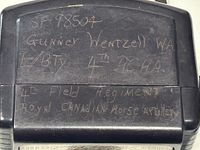 SF 98504
Gunner Wentzell WA
E/Bty 4TH RCHA
4th Field Regiment
Royal Canadian Horse Artillery